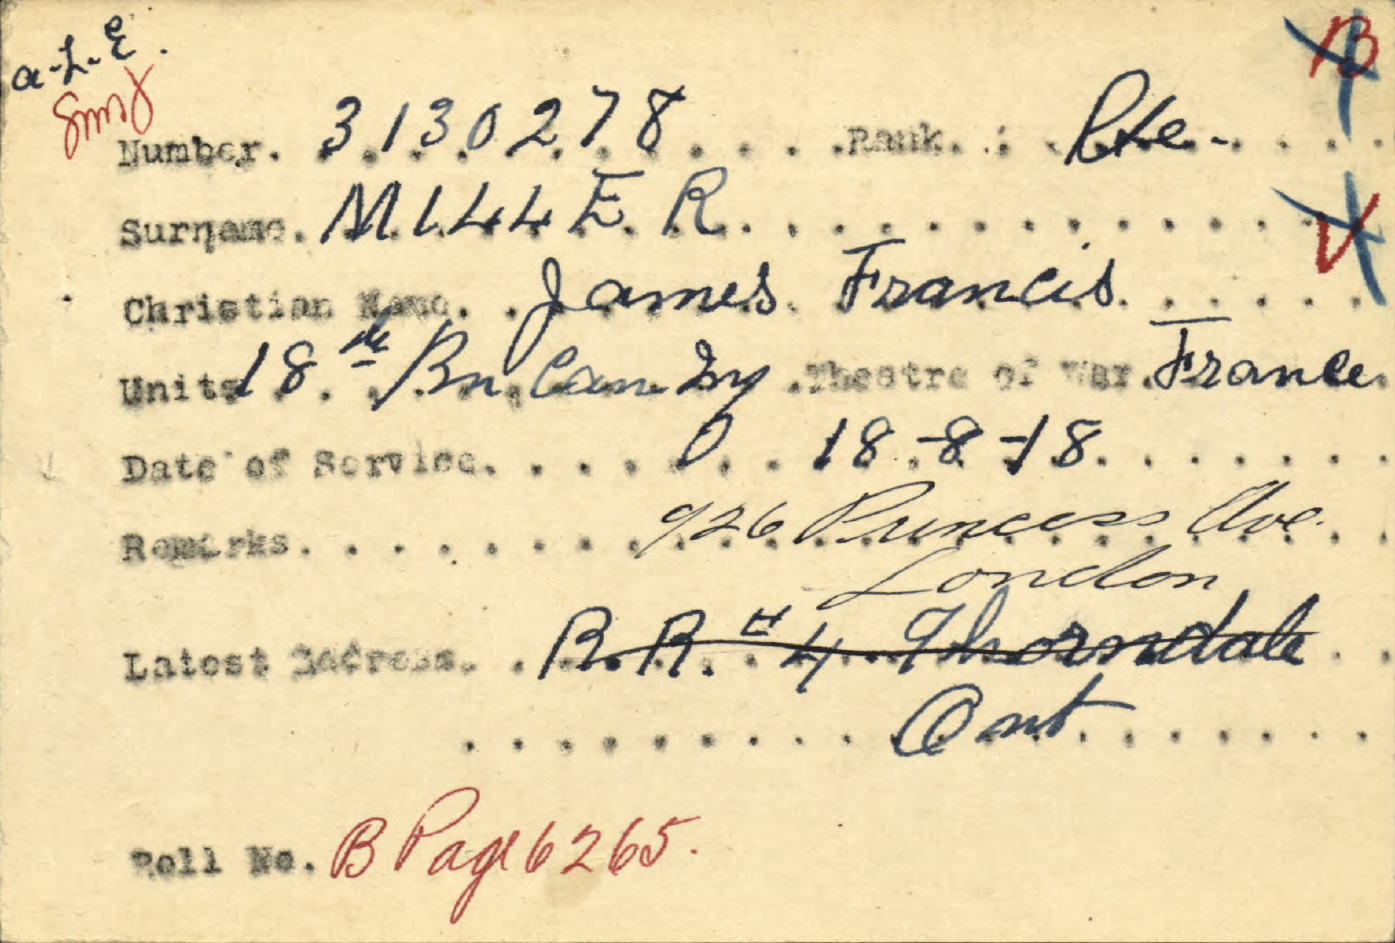 a.L.E.
B
Number. 3130278 Rank. Pte.
Surname. MILLER
V
Christian Name. James Francis
Units 18th Bn Can Inf Theatre of War. France
Date of Service. 18-8-18
Remarks. 926 Princess Ave.
London
Latest Address. R.R. # 4 Thorndale
Ont
Roll No. B Page 6265.